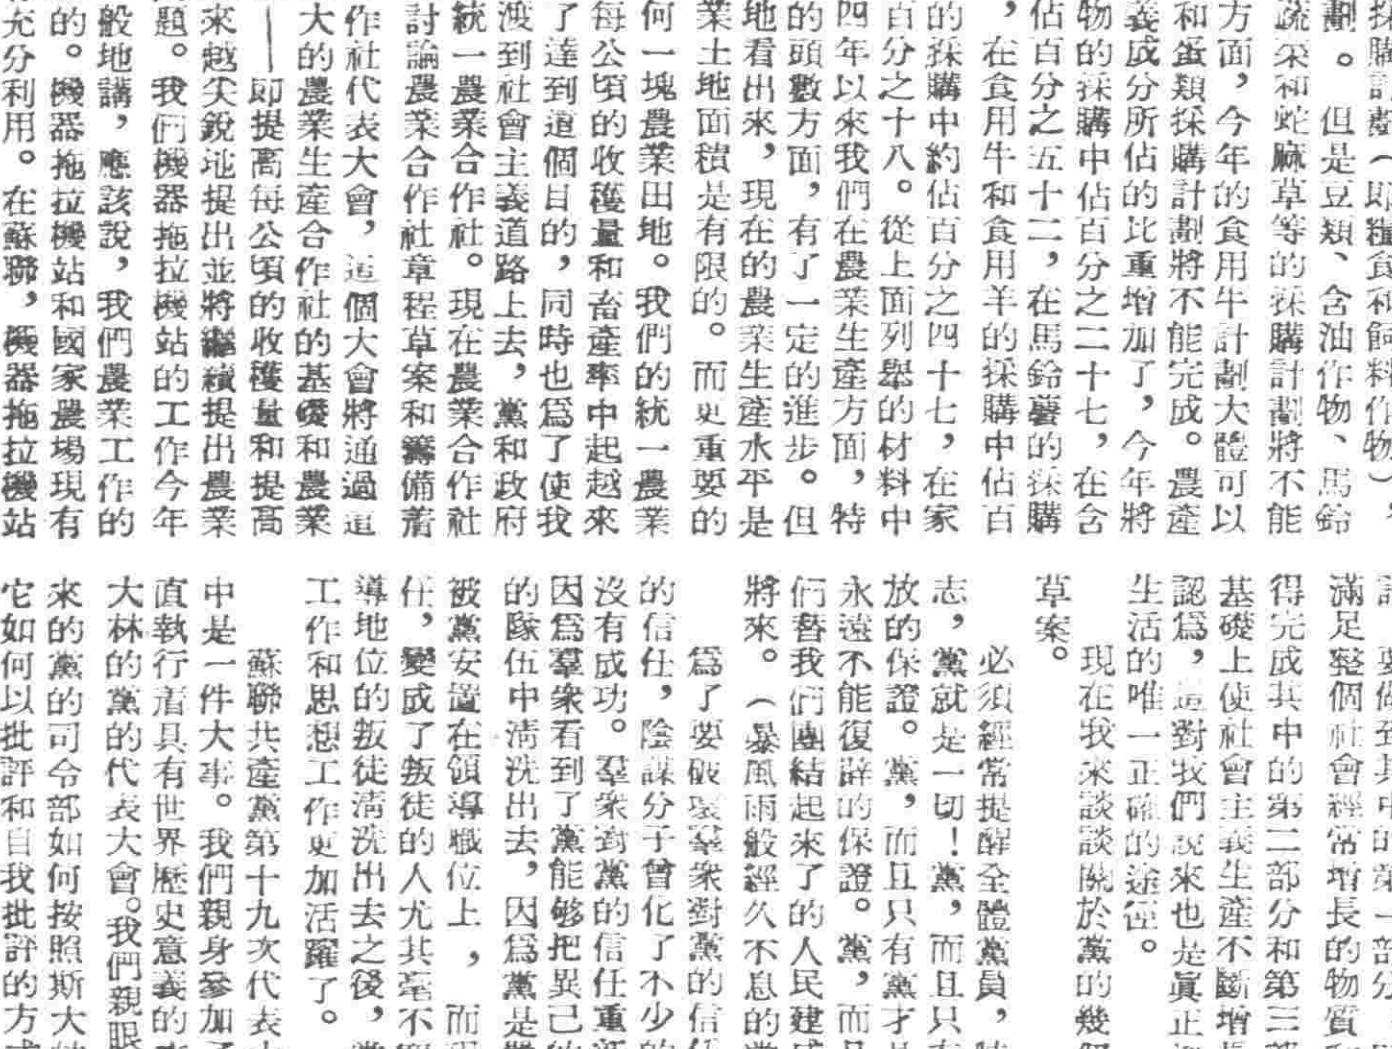 採購計劃（即糧食和飼料作物），
劃。但是豆類、含油作物、馬鈴
蔬菜和蛇麻草等的採購計劃將不能
方面，今年的食用牛計劃大體可以
和蛋類採購計劃將不能完成。農產
義成分所佔的比重增加了，今年將
物的採購中佔百分之二十七，在含
佔百分之五十二，在馬鈴薯的採購
，在食用牛和食用羊的採購中佔百
的採購中約佔百分之四十七，在家
百分之十八。從上面列舉的材料中
四年以來我們在農業生產方面，特
的頭數方面，有了一定的進步。但
地看出來，現在的農業生產水平是
業土地面積是有限的。而更重要的
何一塊農業田地。我們的統一農業
每公頃的收穫量和畜產率中起越來
了達到這個目的，同時也爲了使我
渡到社會主義道路上去，黨和政府
統一農業合作社。現在農業合作社
討論農業合作社章程草案和籌備着
作社代表大會，這個大會將通過這
大的農業生產合作社的基礎和農業
——即提高每公頃的收穫量和提高
來越尖銳地提出並將繼續提出農業
題。我們機器拖拉機站的工作今年
般地講，應該說，我們農業工作的
的。機器拖拉機站和國家農場現有
充分利用。在蘇聯，機器拖拉機站
要做到其中的第一部分，
滿足整個社會經常增長的物質
得完成其中的第二部分和第三部
基礎上使社會主義生產不斷增
認爲，這對我們說來也是眞正
生活的唯一正確的途徑。
現在我來談談關於黨的幾個
草案。
必須經常提醒全體黨員，
志，黨就是一切！黨，而且只有
放的保證。黨，而且只有黨才是
永遠不能復辟的保證。黨，而且
們替我們團結起來了的人民建成
將來。（暴風雨般經久不息的掌
爲了要破壞羣衆對黨的信任
的信任，陰謀分子曾化了不少的
沒有成功。羣衆對黨的信任重新
因爲羣衆看到了黨能够把異己的
的隊伍中淸洗出去，因爲黨是
被黨安置在領導職位上，而
任，變成了叛徒的人尤其毫不
導地位的叛徒淸洗出去之後，黨
工作和思想工作更加活躍了。
蘇聯共產黨第十九次代表大
中是一件大事。我們親身參加了
直執行着具有世界歷史意義的
大林的黨的代表大會。我們親眼
來的黨的司令部如何按照斯大林
它如何以批評和自我批評的方式